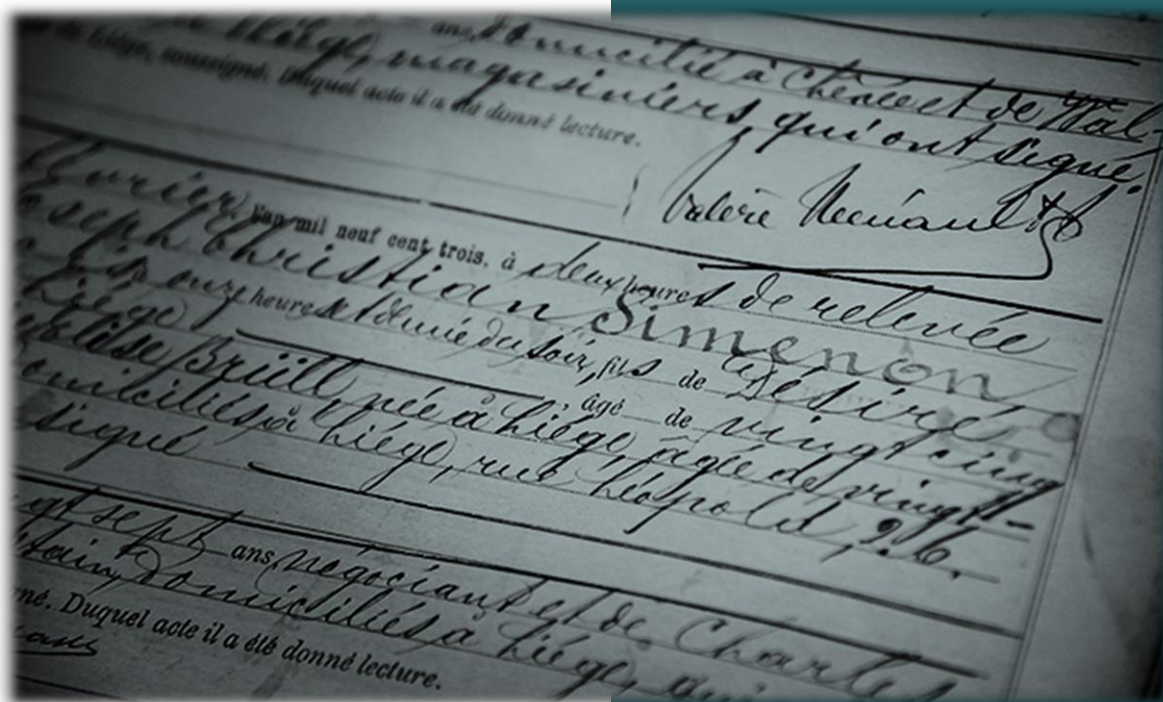 ans, domicilié à Chênée et de Wal-
de Liège, magasiniers qui ont signé.
de Liége, soussigné. Duquel acte il a été donné lecture.
Valère
février l'an mil neuf cent trois, à deux heures de relevée
Joseph Christian Simenon
à onze heures et demie du soir, fils de Désiré
Liége âgé de vingt cinq
Brüll, née à Liége, âgée de vingt-
domiciliés à Liége, rue Léopold, 26.
signé
gt sept ans, négociant et de Charles
domiciliés à Liége, qui
né. Duquel acte il a été donné lecture.